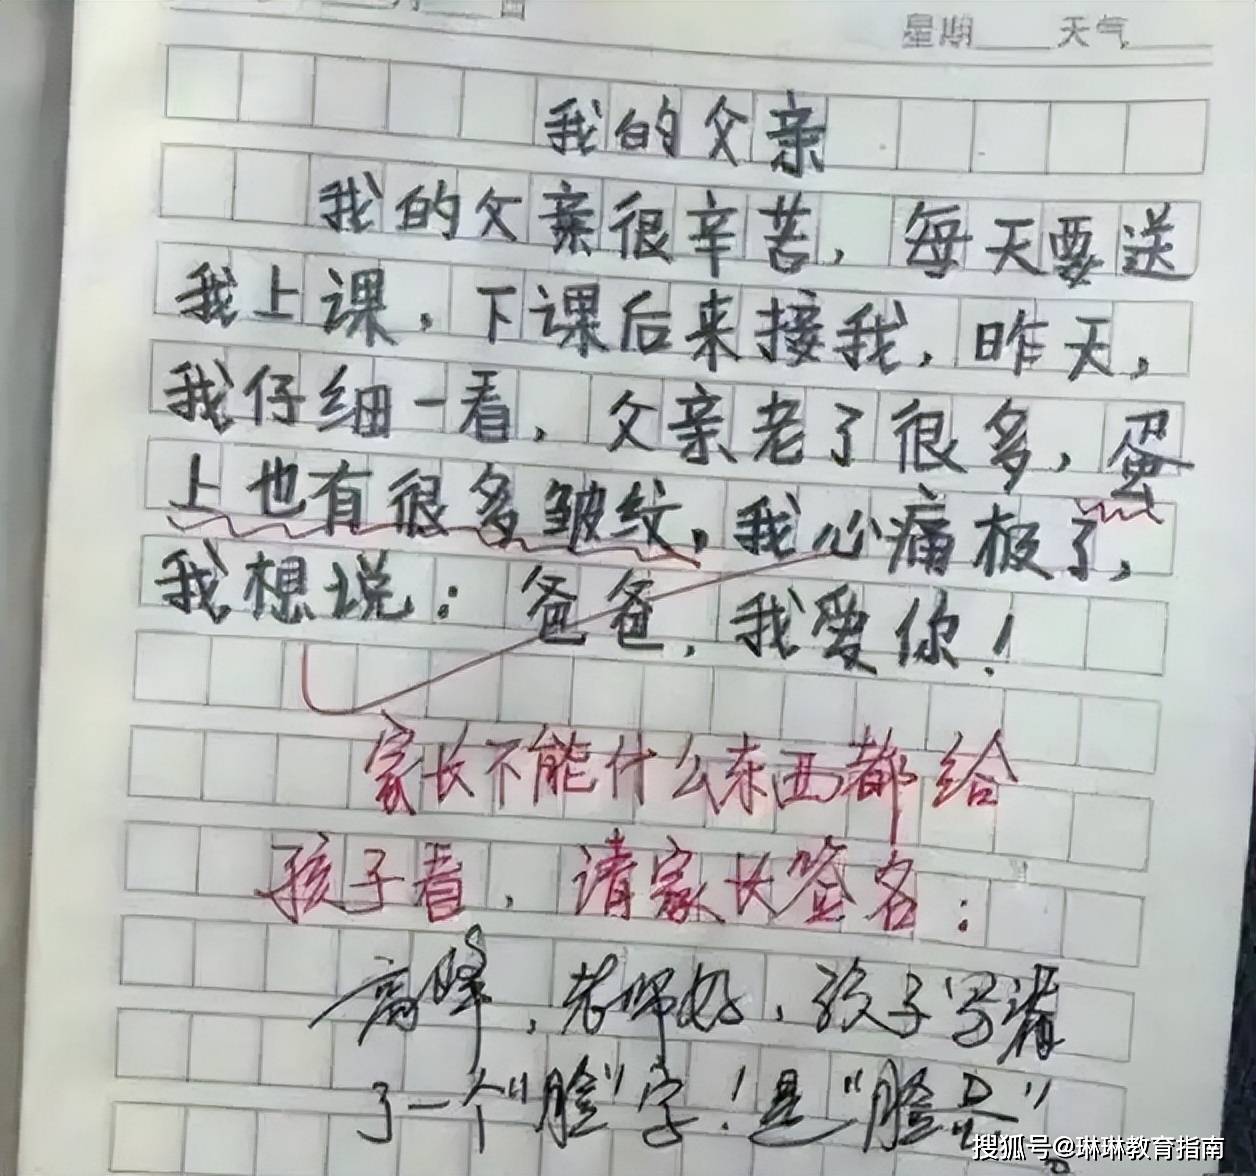 月 日
星期 天气
我的父亲
我的父亲很辛苦，每天要送
我上课，下课后来接我，昨天，
我仔细一看，父亲老了很多，蛋
上也有很多皱纹，我心痛极了，
我想说：爸爸，我爱你！
家长不能什么东西都给
孩子看，请家长签名：
高峰，老师好，孩子写错
了一个"脸"字！是"脸蛋"
搜狐号@琳琳教育指南